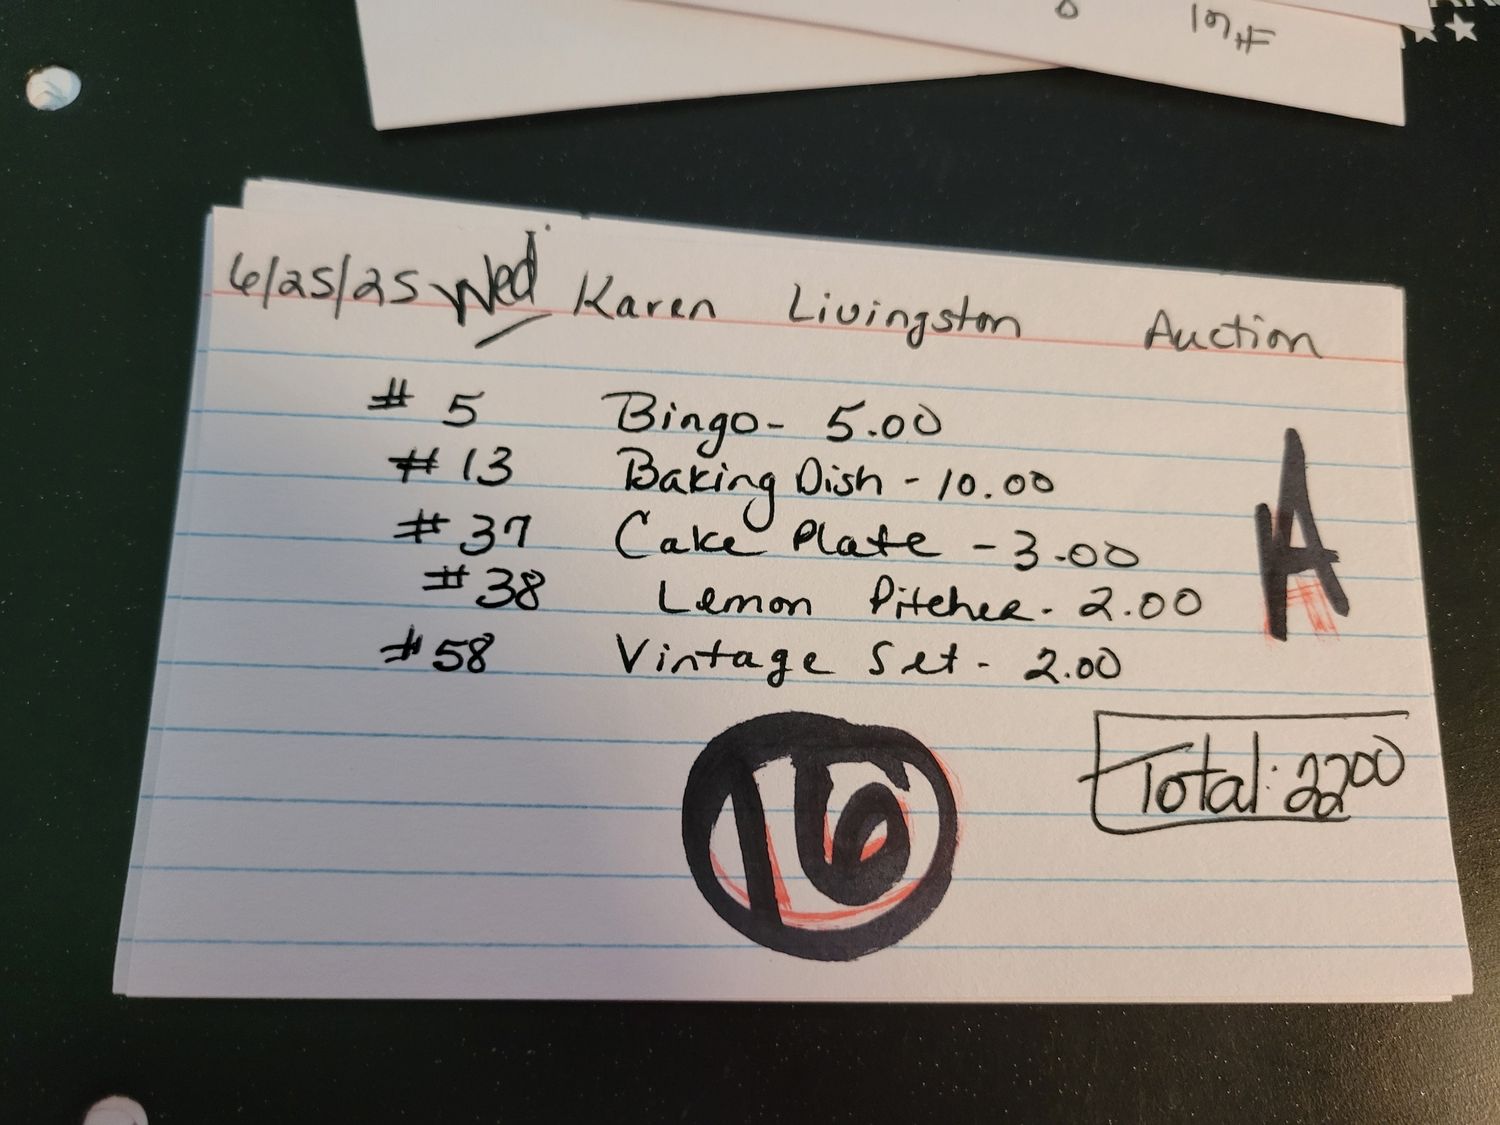 6/25/25 Wed Karen Livingston Auction
# 5 Bingo - 5.00
# 13 Baking Dish - 10.00
# 37 Cake Plate - 3.00
# 38 Lemon Pitcher - 2.00
# 58 Vintage Set - 2.00
A
Total: 22.00
16